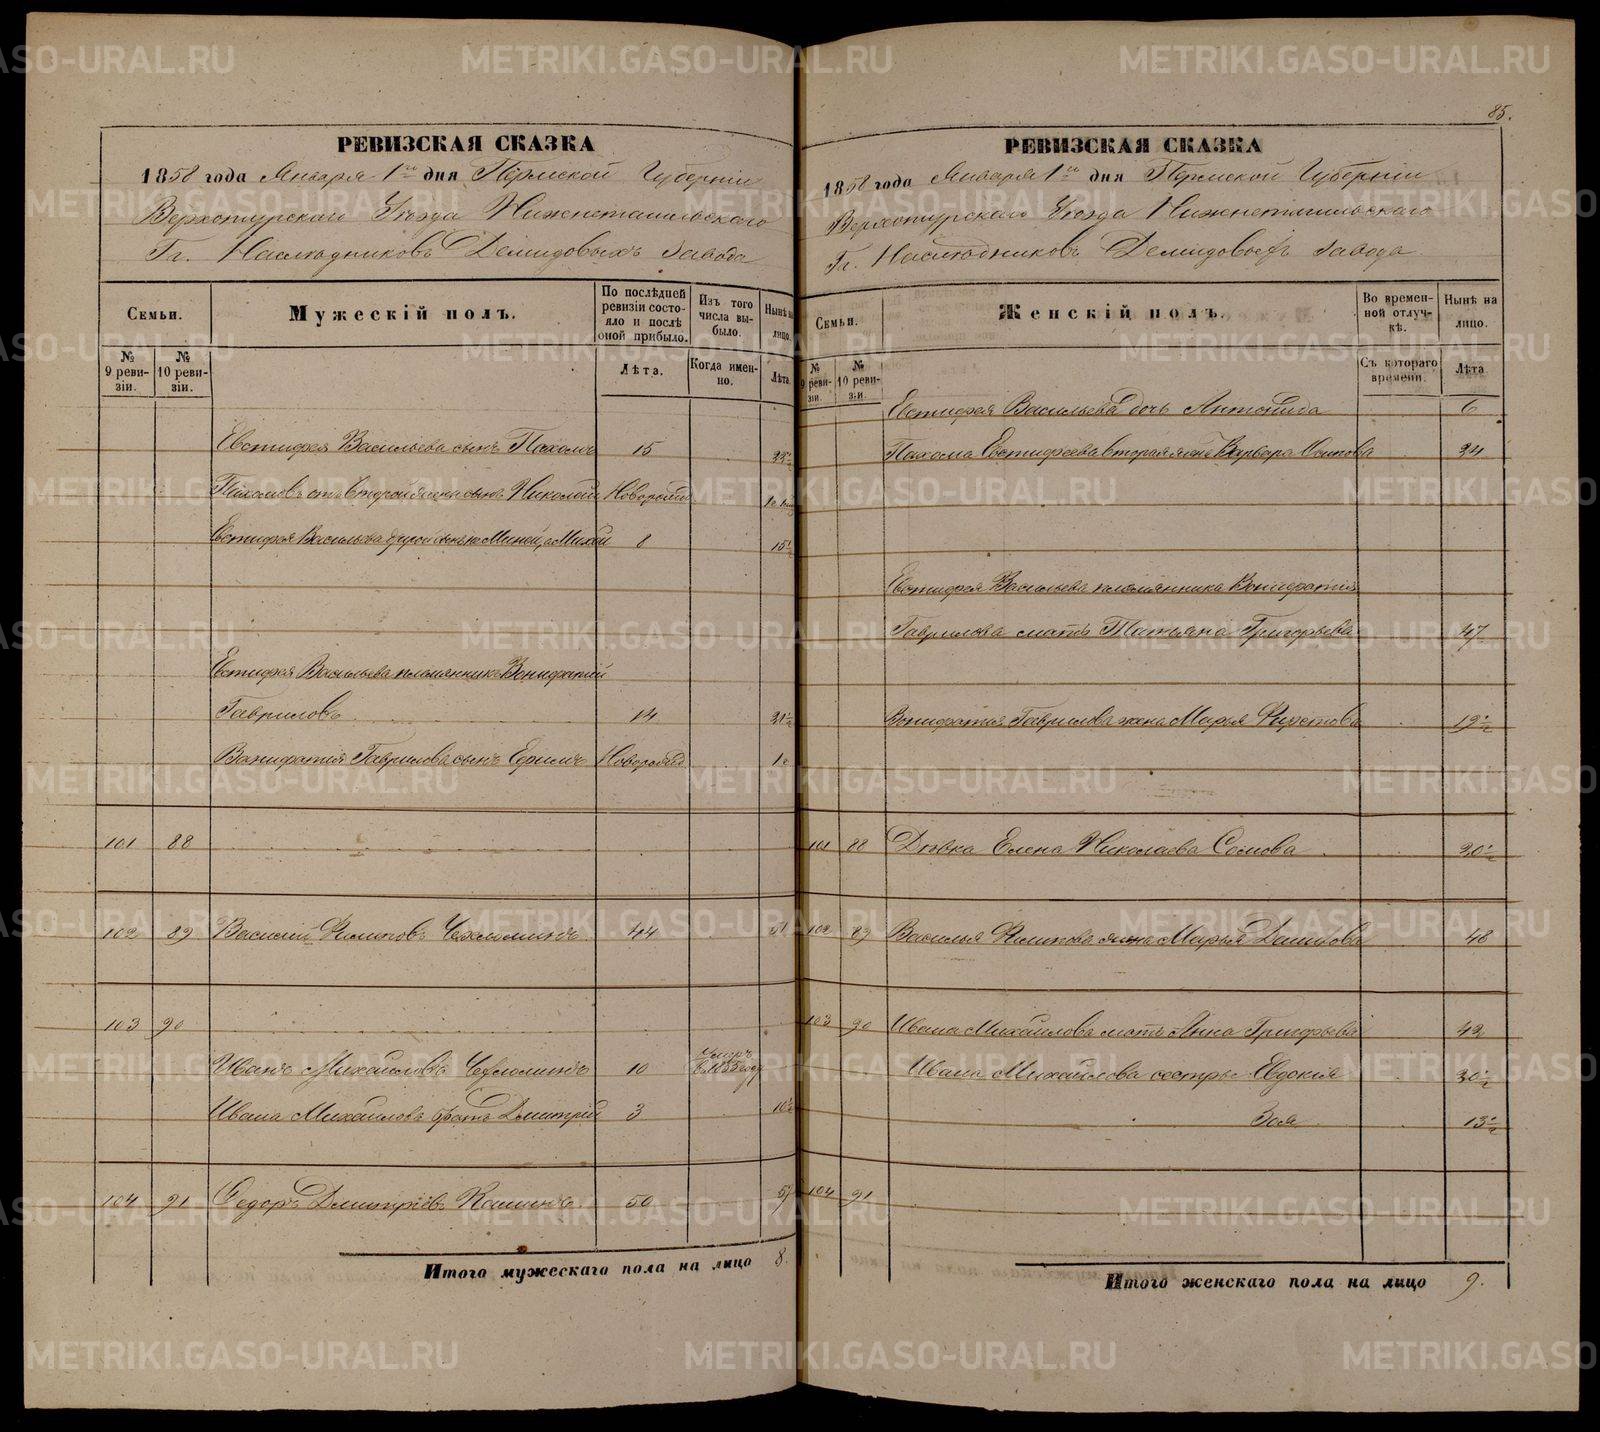 РЕВИЗСКАЯ СКАЗКА
1858 года Января 1го дня Пермской Губерніи
Верхотурскаго Уѣзда Нижнетагильскаго
Гг. Наслѣдниковъ Демидовыхъ завода
Семьи.
Мужескій полъ.
По послѣдней ревизіи состояло и послѣ оной прибыло.
Изъ того числа выбыло.
Нынѣ на лицо.
№ 9 ревизіи.
№ 10 ревизіи.
Лѣта.
Когда именно.
Лѣта.
Евстифея Васильева сынъ Пахомъ 15
Пахомовъ отъ второй жены сынъ Николай Новорожд
Евстифея Васильева 8 15½
Евстифея Васильева племянникъ Вонифатій
Гавриловъ 14 21½
Вонифатія Гаврилова сынъ Ефимъ Новорожд
101 88
102 89 Василій Филиповъ 44 51
103 90
Иванъ Михайловъ 10 Умеръ въ 1855 году
Ивана Михайлова братъ Дмитрій 3 10½
104 91 Федоръ Дмитріевъ 50 57
Итого мужескаго пола на лицо 8.
85.
РЕВИЗСКАЯ СКАЗКА
1858 года Января 1го дня Пермской Губерніи
Верхотурскаго Уѣзда Нижнетагильскаго
Гг. Наслѣдниковъ Демидовыхъ завода
Семьи.
Женскій полъ.
Во временной отлучкѣ.
Нынѣ на лицо.
№ 9 ревизіи.
№ 10 ревизіи.
Съ котораго времени.
Лѣта
Евстифея Васильева дочь Антонида 6
Пахома Евстифеева вторая жена Варвара Осипова 24
Евстифея Васильева племянника Вонифатія
Гаврилова мать Татьяна Григорьева 47
Вонифатія Гаврилова жена Марья 19½
101 88 Дѣвка Елена Николаева Сомова 30½
102 89 Василья Филипова жена Марья Данилова 48
103 90 Ивана Михайлова мать Анна Григорьева 42
Ивана Михайлова сестры Евдокія 20½
Зоя 13½
104 91
Итого женскаго пола на лицо 9.
METRIKI.GASO-URAL.RU